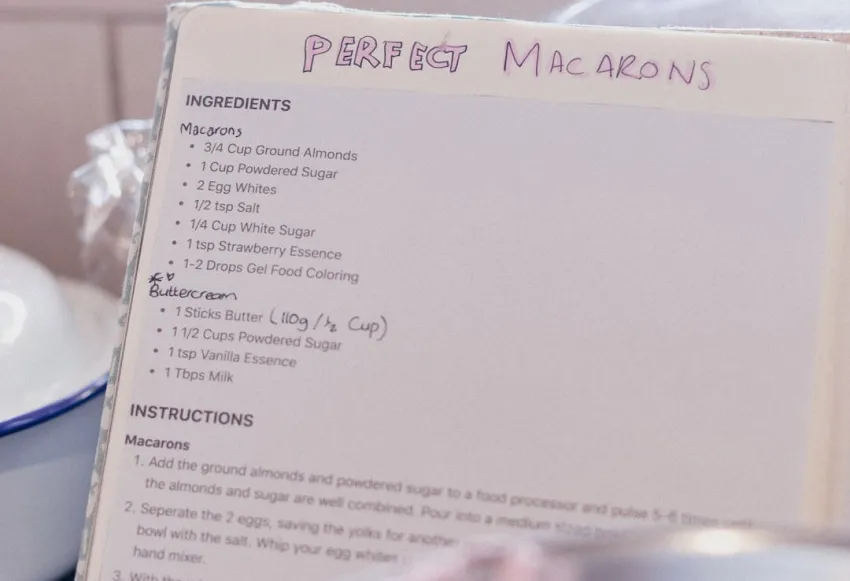 PERFECT MACARONS
INGREDIENTS
Macarons
• 3/4 Cup Ground Almonds
• 1 Cup Powdered Sugar
• 2 Egg Whites
• 1/2 tsp Salt
• 1/4 Cup White Sugar
• 1 tsp Strawberry Essence
• 1-2 Drops Gel Food Coloring
Buttercream
• 1 Sticks Butter (110g / 1/2 Cup)
• 1 1/2 Cups Powdered Sugar
• 1 tsp Vanilla Essence
• 1 Tbps Milk
INSTRUCTIONS
Macarons
1. Add the ground almonds and powdered sugar to a food processor and pulse 5-6 times until
the almonds and sugar are well combined. Pour into a medium sized bowl
2. Seperate the 2 eggs, saving the yolks for another
bowl with the salt. Whip your egg whites
hand mixer.
3. With